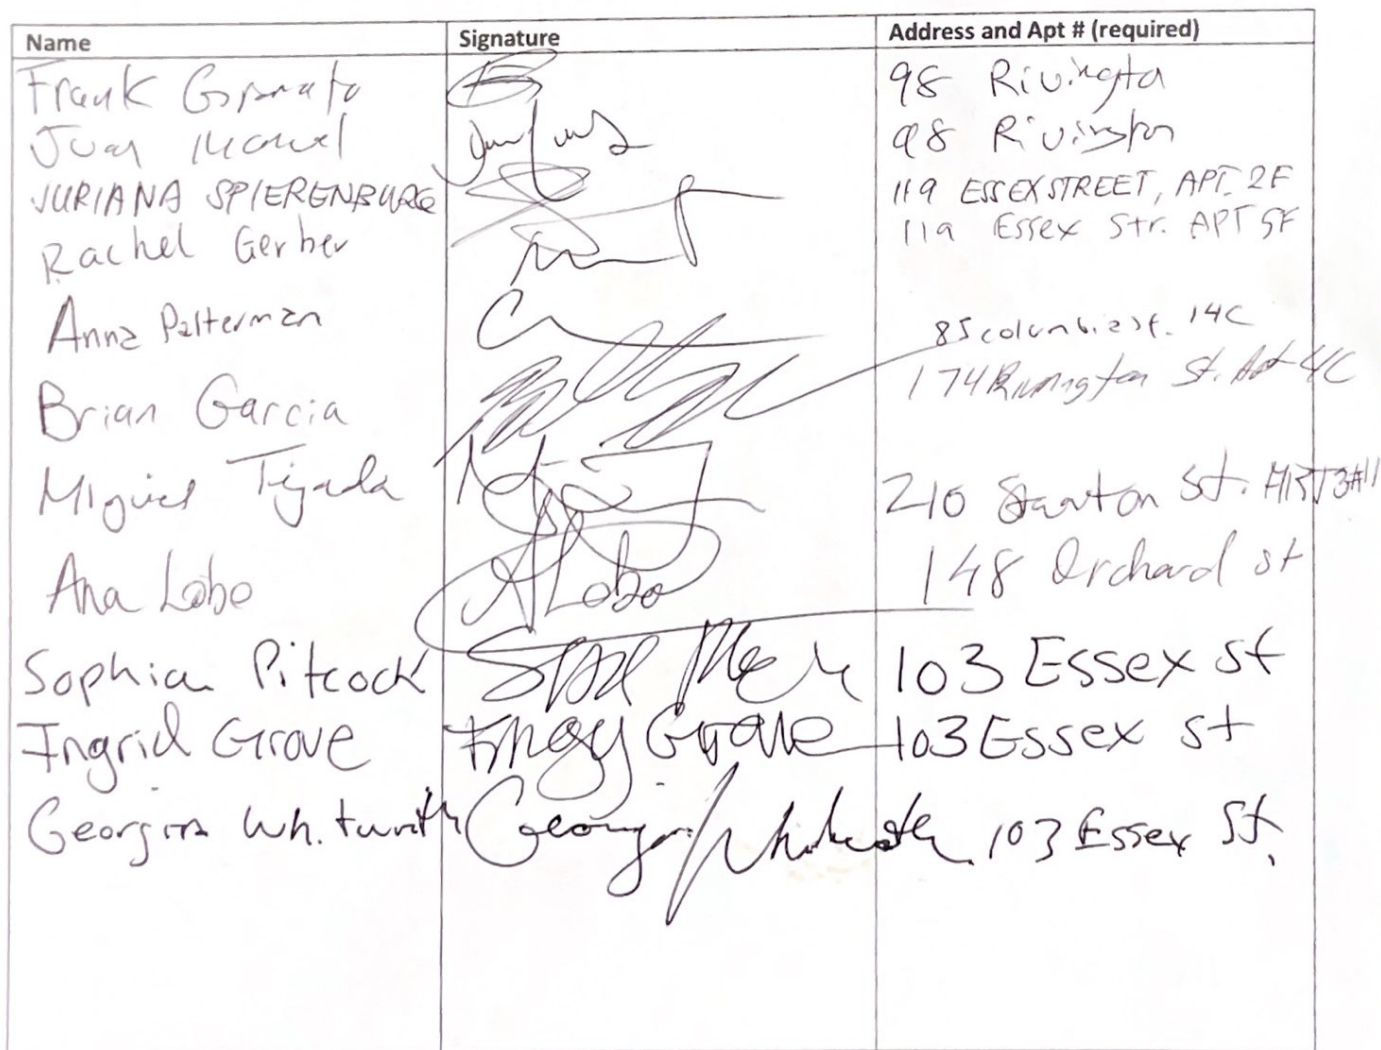 Name Signature Address and Apt # (required)
Frank 98 Rivington
Juan Manuel 98 Rivington
JURIANA SPIERENBURG 119 ESSEX STREET, APT. 2F
Rachel Gerber 119 Essex Str. APT 5F
Anna Palterman 85 columbia st. 14C
Brian Garcia 174 Rivington St. Apt 4C
Miguel Tejada 210 Stanton St.
Ana Lobo ALobo 148 Orchard st
Sophia Pitcock 103 Essex st
Ingrid Grove Grove 103 Essex st
Georgina 103 Essex St.